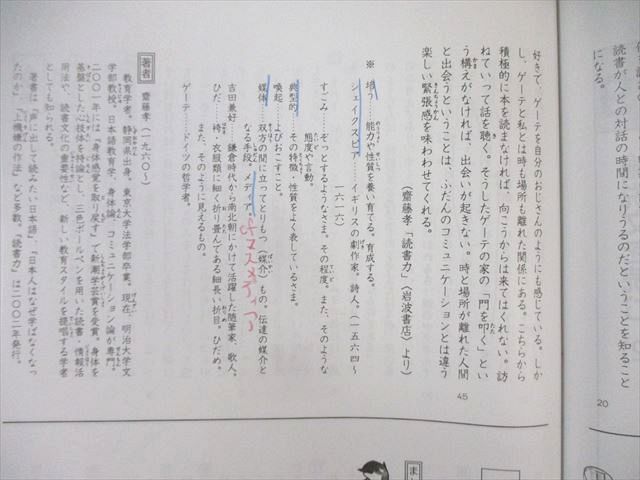 読書が人との対話の時間になりうるのだということを知ること
になる。
20
好きで、ゲーテを自分のおじさんのようにも感じている。しか
し、ゲーテと私とは時も場所も離れた関係にある。こちらから
積極的に本を読まなければ、向こうからは来てはくれない。訪
ねていって話を聴く。そうしたゲーテの家の「門を叩く」とい
う構えがなければ、出会いが起きない。時と場所が離れた人間
と出会うということは、ふだんのコミュニケーションとは違う
楽しい緊張感を味わわせてくれる。
45
(齋藤孝「読書力」〈岩波書店〉より)
※ 培う……能力や性質を養い育てる。育成する。
シェイクスピア……イギリスの劇作家。詩人。(一五六四〜
一六一六)
すごみ……ぞっとするようなさま。その程度。また、そのような
態度や言動。
典型的……その特徴・性質をよく表しているさま。
喚起……よびおこすこと。
媒体……双方の間に立ってとりもつ(媒介)もの。伝達の媒介と
なる手段。メディア。マスメディア
吉田兼好……鎌倉時代から南北朝にかけて活躍した随筆家、歌人。
ひだ……袴、衣服類に細く折り畳んである細長い折目。ひだめ。
また、そのように見えるもの。
ゲーテ……ドイツの哲学者。
著者 齋藤孝(一九六〇〜)
教育学者。静岡県出身。東京大学法学部卒業。現在、明治大学文
学部教授。日本語教育学、身体論、コミュニケーション論が専門。
二〇〇一年には「身体感覚を取り戻す」で新潮学芸賞を受賞。身体を
基盤とした心技体を持論とし、三色ボールペンを用いた読書・情報活
用法や、読書文化の重要性など、新しい教育スタイルを提唱する学者
としても知られる。
著書は「声に出して読みたい日本語」、「日本人はなぜ学ばなくなっ
たのか」、「上機嫌の作法」など多数。「読書力」は二〇〇二年発行。